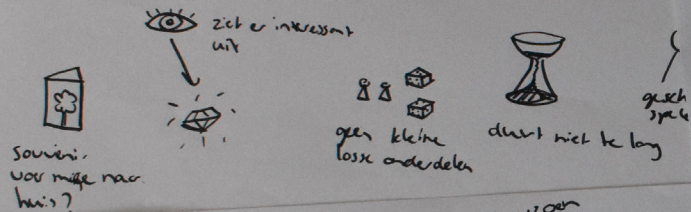 ziet er interessant
uit
souveni-
voor mee naar
huis?
geen kleine
losse onderdelen
duurt niet te lang
gesch
spele